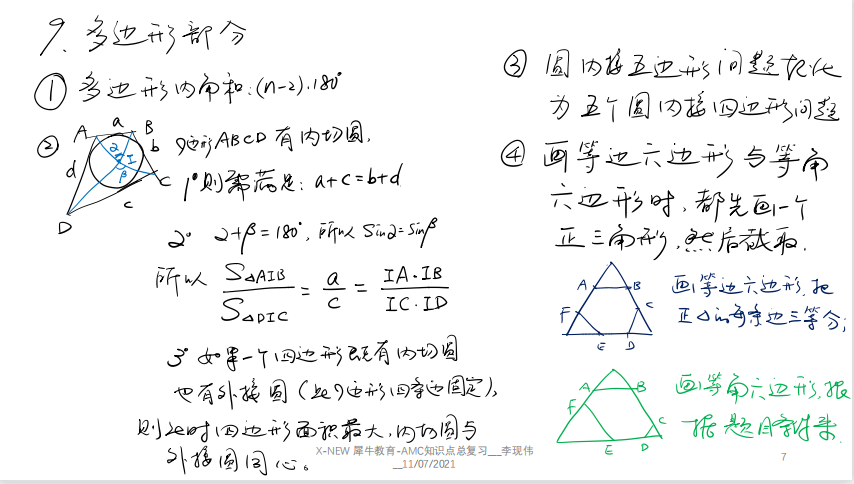 9. 多边形部分
① 多边形内角和:(n-2)·180°
② A a B b C c D d I α β
四边形ABCD有内切圆,
1° 则需满足: a+c=b+d
2° α+β=180°, 所以 Sinα=Sinβ
所以 S△AIB / S△DIC = a / c = IA·IB / IC·ID
3° 如果一个四边形既有内切圆
也有外接圆(此四边形四条边固定),
则此时四边形面积最大,内切圆与
外接圆同心。
③ 圆内接五边形问题转化
为五个圆内接四边形问题
④ 画等边六边形与等角
六边形时,都先画一个
正三角形,然后截取.
A B C D E F
画等边六边形,把
正△的每条边三等分;
A B C D E F
画等角六边形,根
据题目条件来.
X-NEW 犀牛教育-AMC知识点总复习__李现伟
__11/07/2021
7